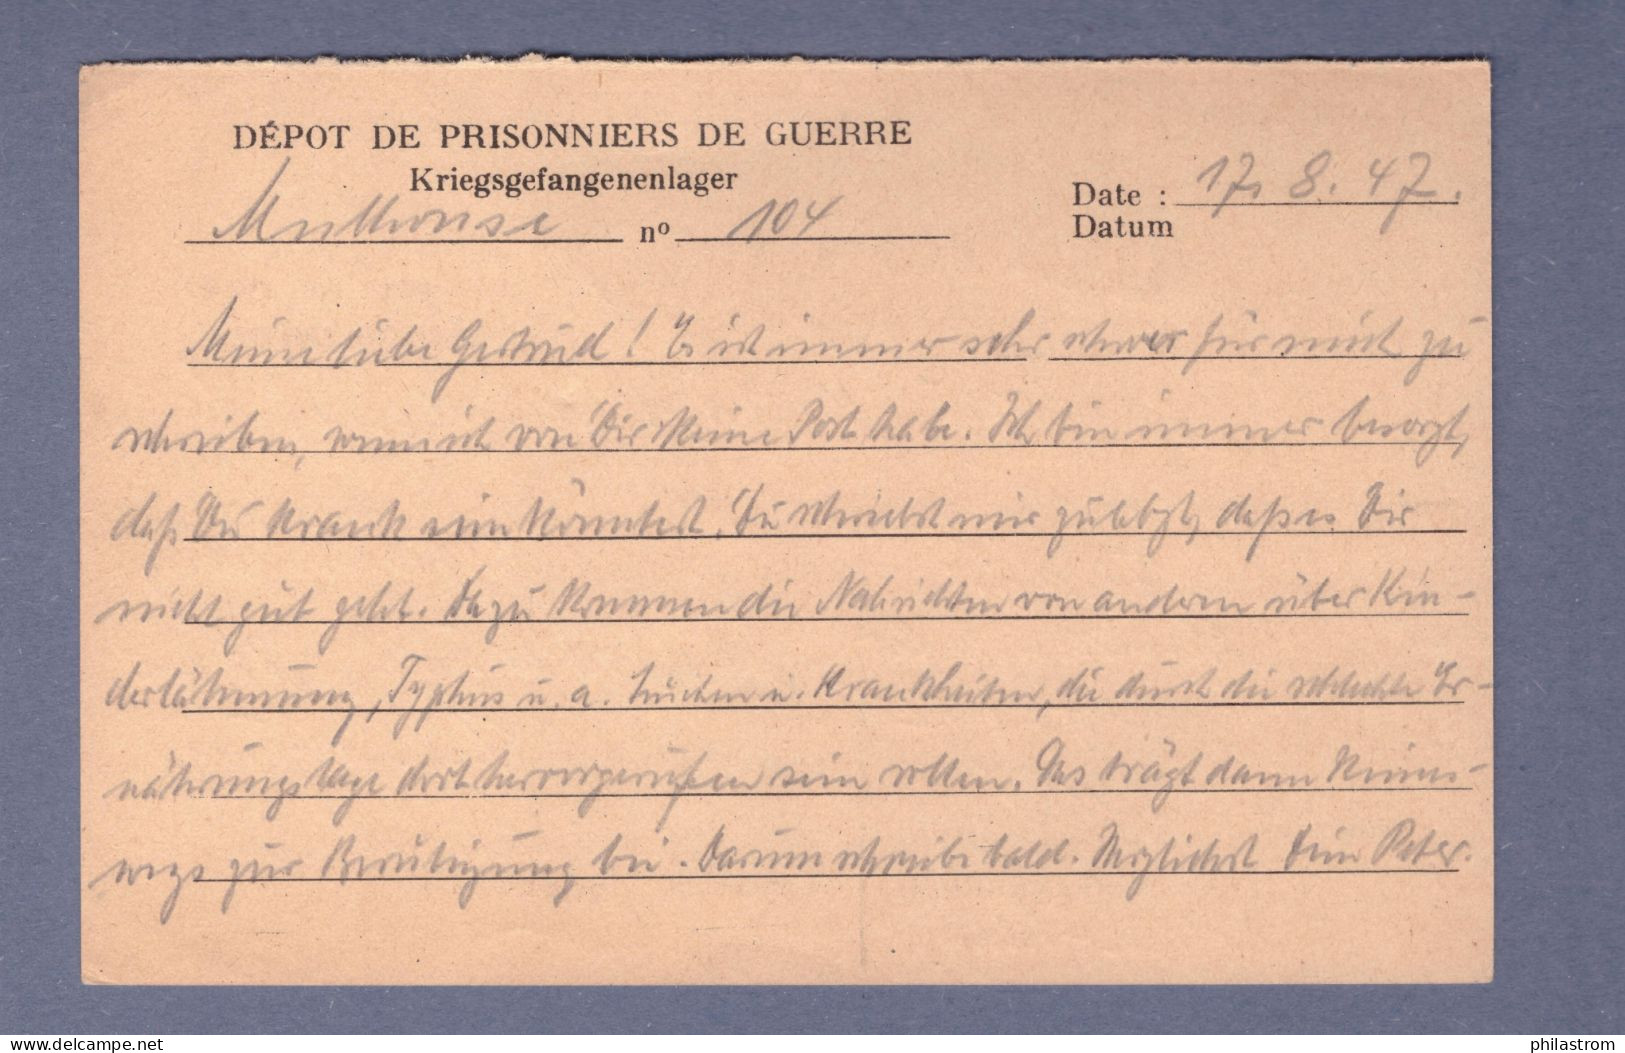 DÉPOT DE PRISONNIERS DE GUERRE
Kriegsgefangenenlager
Mulhouse nº 104
Date : 17. 8. 47.
Datum
Meine liebe Gertrud! Es ist immer sehr schwer für mich zu
schreiben, wenn ich von Dir keine Post habe. Ich bin immer besorgt,
daß Du krank sein könntest. Du schriebst mir zuletzt, daß es Dir
nicht gut geht. Dazu kommen die Nachrichten von anderen über Kin-
derlähmung, Typhus u. a. Seuchen u. Krankheiten, die durch die schlechte Er-
nährungslage dort hervorgerufen sein sollen. Das trägt dann keines-
wegs zur Beruhigung bei. Darum schreibe bald. Herzlichst Dein Peter.
philastrom.com
philastrom